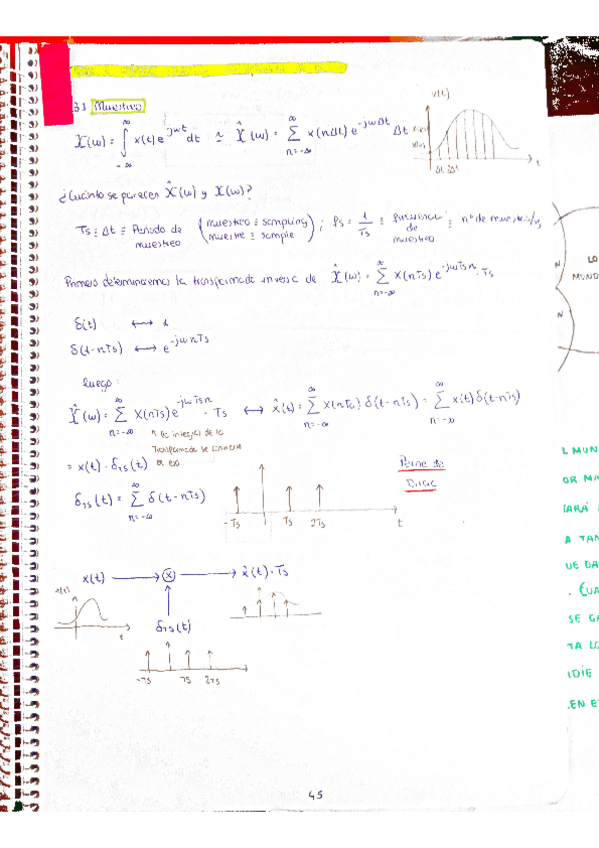 3.1 Muestreo
X(ω) = ∫_{-∞}^{∞} x(t) e^{jωt} dt ≃ X̂(ω) = Σ_{n=-∞}^{∞} x(nΔt) e^{-jωΔt} Δt
x(t)
t
¿Cuánto se parecen X̂(ω) y X(ω)?
Ts ≡ Δt ≡ Periodo de muestreo (muestreo ≡ sampling / muestra ≡ sample) ; fs = 1/Ts ≡ frecuencia de muestreo ≡ nº de muestras/s
Primero determinaremos la transformada inversa de X̂(ω) = Σ_{n=-∞}^{∞} x(nTs) e^{-jωTsn} · Ts
δ(t) ⟷ 1
δ(t-nTs) ⟷ e^{-jωnTs}
Luego:
X̂(ω) = Σ_{n=-∞}^{∞} x(nTs) e^{-jωTsn} · Ts ⟷ x̂(t) = Σ_{n=-∞}^{∞} x(nTs) δ(t-nTs) = Σ_{n=-∞}^{∞} x(t) δ(t-nTs)
la integral de la
transformada se convierte
en eso
= x(t) · δ_{Ts}(t)
Peine de
Dirac
δ_{Ts}(t) = Σ_{n=-∞}^{∞} δ(t-nTs)
-Ts Ts 2Ts t
x(t) ⟶ ⊗ ⟶ x̂(t) · Ts
x(t)
t
δ_{Ts}(t)
-Ts Ts 2Ts
45
LO
MUND
N
N
L MUN
OR MA
IARÁ
A TAN
UE DA
. CUA
SE GA
TA LO
IDIE
EN E